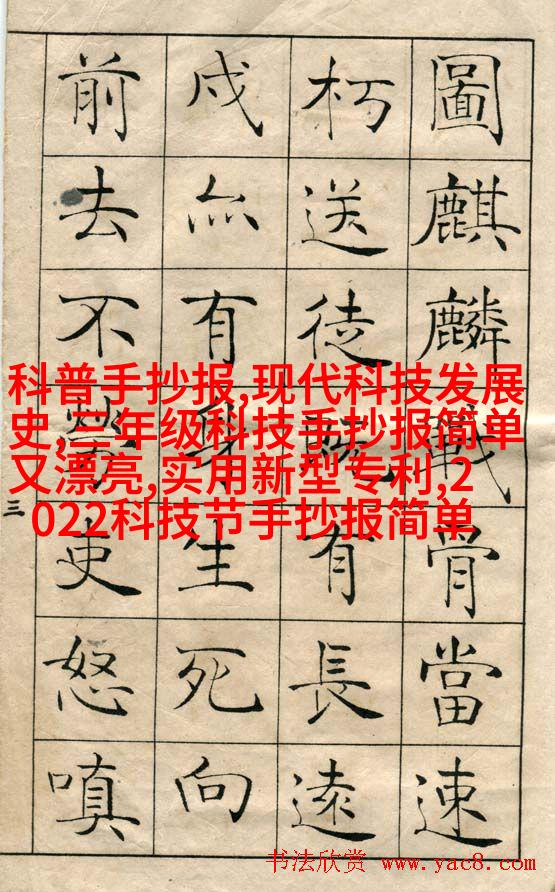 圖麒麟戰骨當速
朽送徒既有長遠
戍亦有身生死向
前去不勞吏怒嗔
三
科普手抄报,现代科技发展
史,二年级科技手抄报简单
又漂亮,实用新型专利,2
022科技节手抄报简单
书法欣赏 www.yac8.com